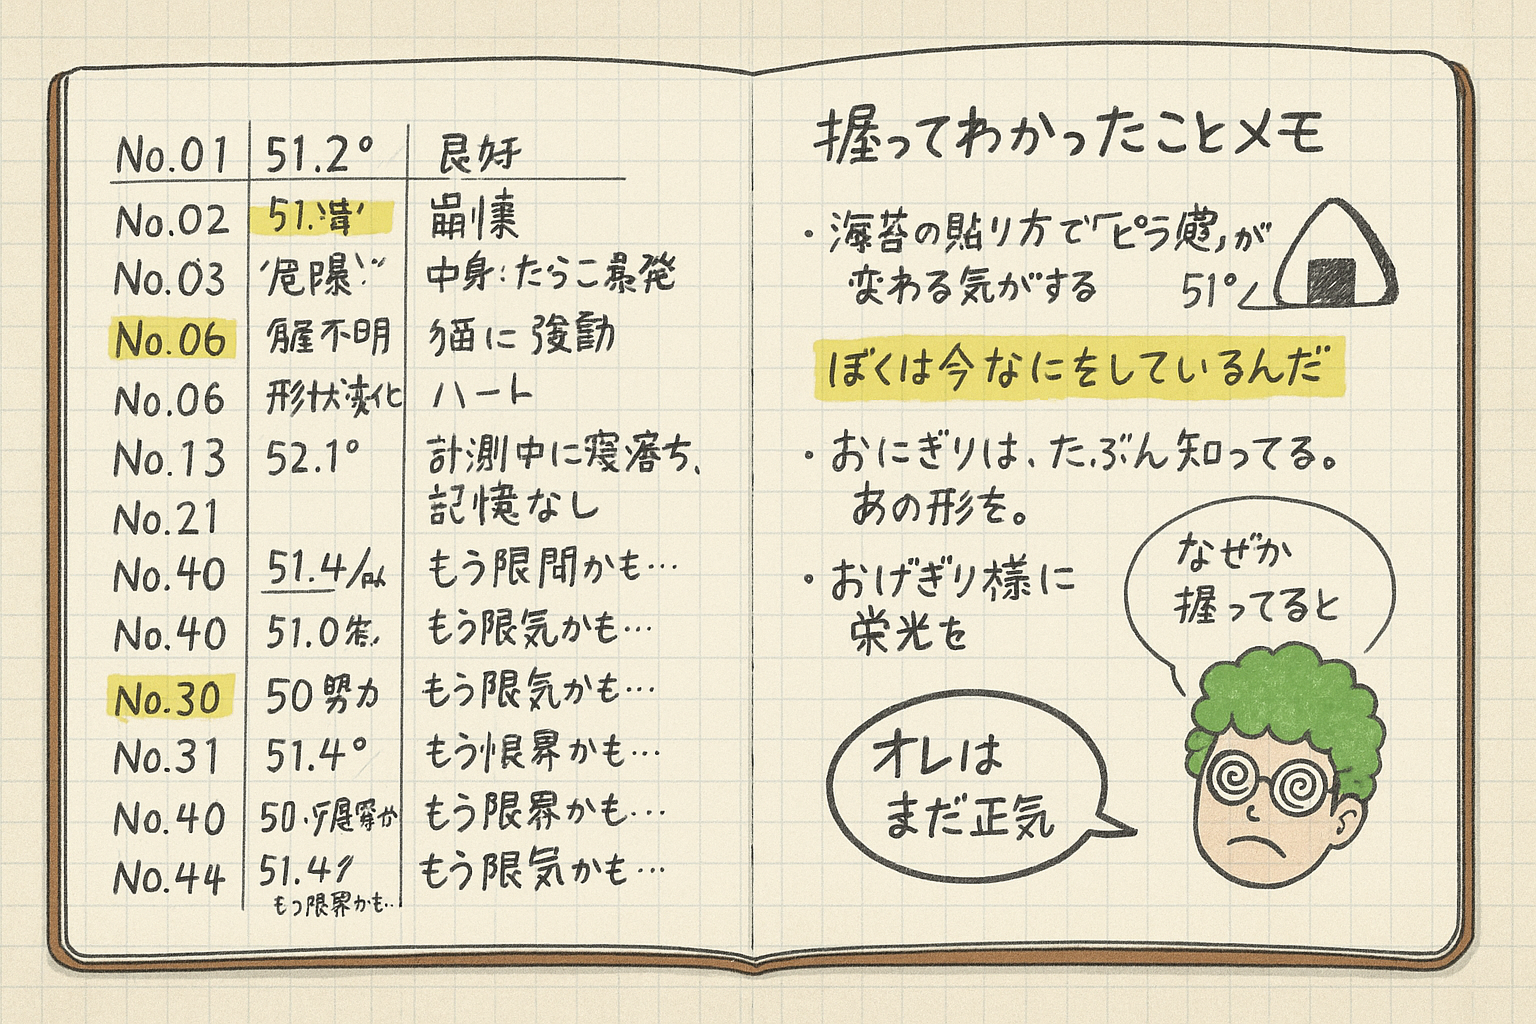 No.01 51.2° 良好
No.02 51.
No.03 中身:たらこ
No.06 不明 猫に
No.06 形状変化 ハート
No.13 52.1° 計測中に寝落ち、
記憶なし
No.21
No.40 51.4/ もう限間かも…
No.40 51.0 もう限気かも…
No.30 50努力 もう限気かも…
No.31 51.4° もう限界かも…
No.40 50. もう限界かも…
No.44 51.4 もう限気かも…
もう限界かも…
握ってわかったことメモ
・海苔の貼り方で「ピラ」が
変わる気がする
51°
ぼくは今なにをしているんだ
・おにぎりは、たぶん知ってる。
あの形を。
・おげぎり様に
栄光を
なぜか
握ってると
オレは
まだ正気